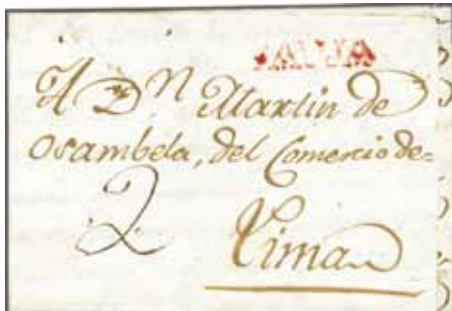 JAUJA
A Dn Martin de
Osambela, del Comercio de=
2 Lima